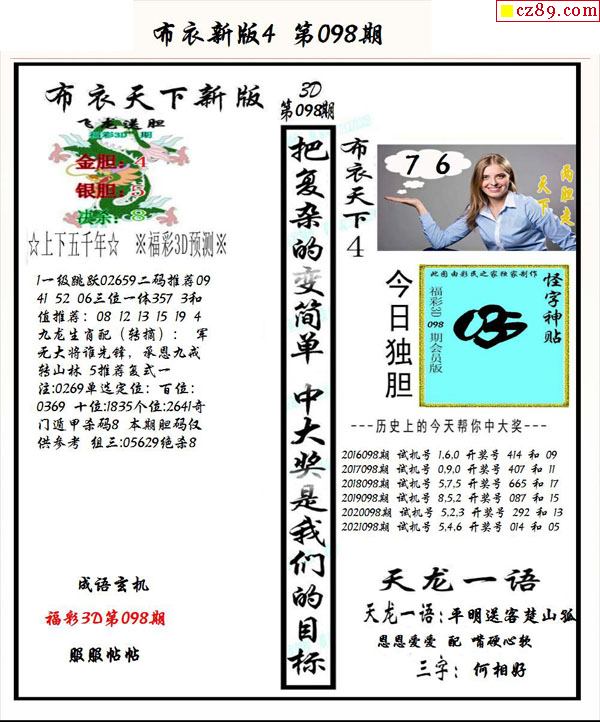 cz89.com
布衣新版4 第098期
布衣天下新版
飞龙送胆
福彩3D 期
金胆：4
银胆：5
决杀：8
☆上下五千年☆ ※福彩3D预测※
1一级跳跃02659二码推荐09
41 52 06三位一体357 3和
值推荐：08 12 13 15 19 4
九龙生肖配（转摘）： 军
无大将谁先锋，承恩九戒
转山林 5推荐复式一
注:0269单选定位：百位:
0369 十位:1835个位:2641奇
门遁甲杀码8 本期胆码仅
供参考 组三:05629绝杀8
成语玄机
福彩3D第098期
服服帖帖
3D
第098期
把复杂的变简单 中大奖是我们的目标
布衣天下4
7 6
两胆走天下
今日独胆
此图由彩民之家独家制作
福彩3D 098 期会员版
怪字神贴
---历史上的今天帮你中大奖---
2016098期 试机号 1.6.0 开奖号 414 和 09
2017098期 试机号 0.9.0 开奖号 407 和 11
2018098期 试机号 5.7.5 开奖号 665 和 17
2019098期 试机号 8.5.2 开奖号 087 和 15
2020098期 试机号 5.2.3 开奖号 292 和 13
2021098期 试机号 5.4.6 开奖号 014 和 05
天龙一语
天龙一语：平明送客楚山孤
恩恩爱爱 配 嘴硬心软
三字： 何相好